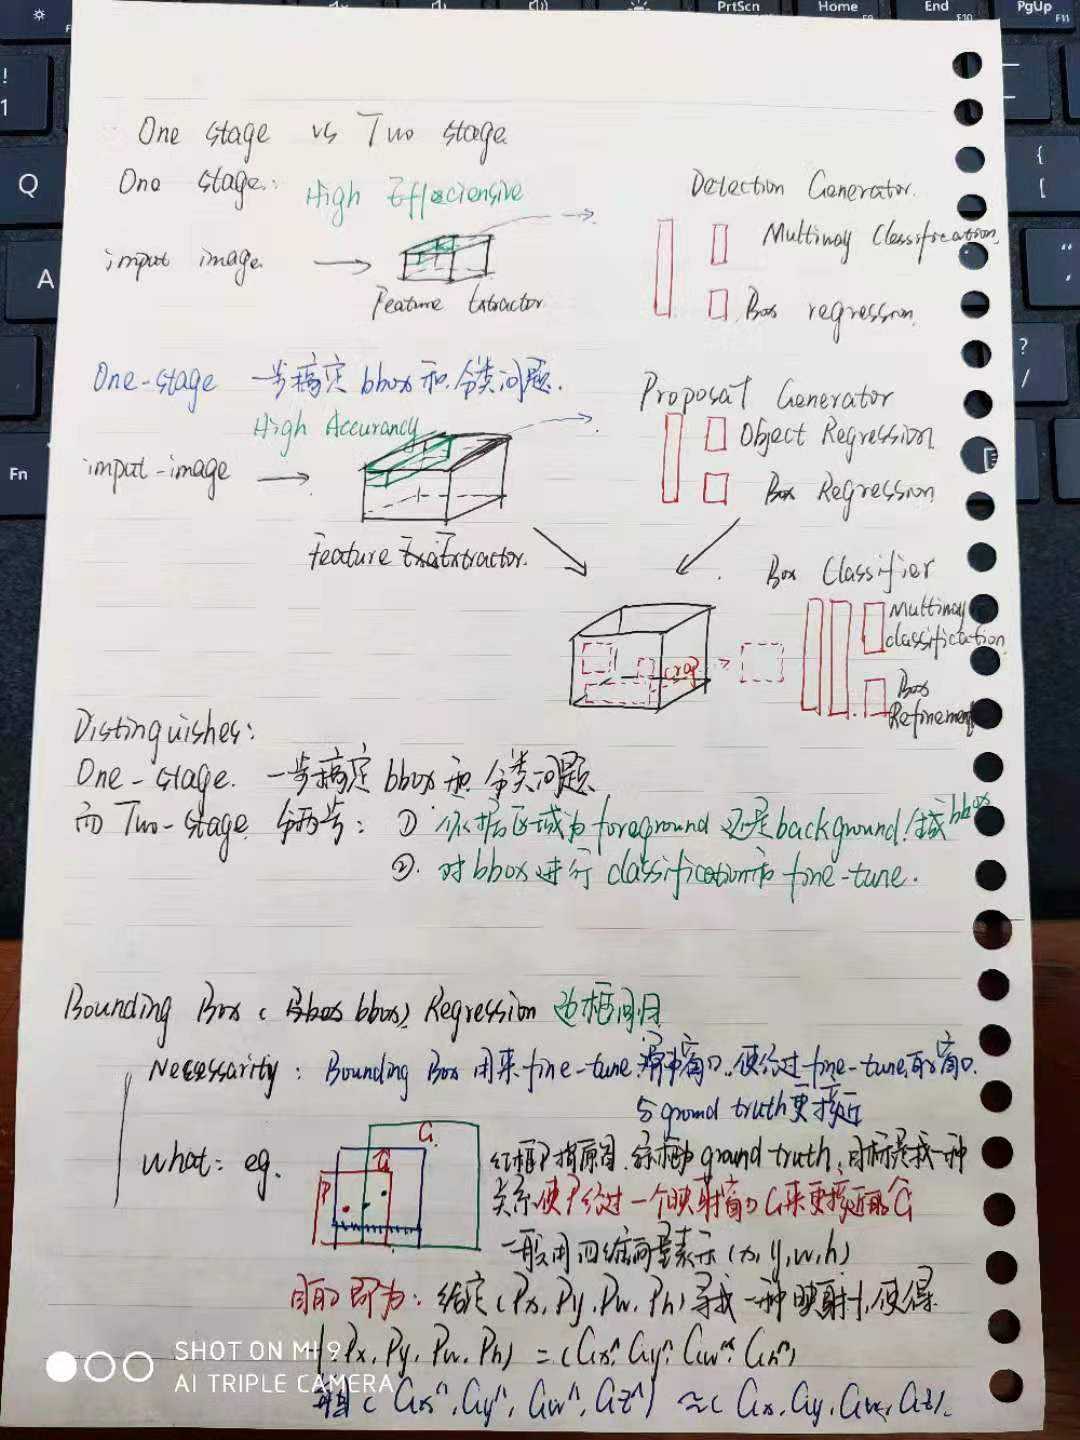 One stage vs Two stage
One stage: High Effeciensive
Detection Generator.
Multiway Classification
input image
Feature Extractor
Box regression
One-stage 一步搞定 bbox 和分类问题.
High Accurancy
Proposal Generator
Object Regression
input-image
Box Regression
Feature Extractor.
Box Classifier
Multiway
classifictation
crop
Box
Refinement
Distinguishes:
One-stage. 一步搞定 bbox 和 分类问题
而 Two-stage 分两步: ① 依据区域为 foreground 还是 background 生成 bbox
②. 对 bbox 进行 classification 和 fine-tune.
Bounding Box ( bbox) Regression 边框回归
Necessarity: Bounding Box 用来 fine-tune 滑动窗口, 使经过 fine-tune 的窗口
与 ground truth 更接近
G
Ĝ
What: eg.
P
红框P指原图, 绿框为 ground truth, 目标是找一种
关系使P经过一个映射窗口G来更接近的Ĝ
一般用四维向量表示 (x,y,w,h)
目的即为: 给定 (Px, Py, Pw, Ph) 寻找一种映射f, 使得
f(Px, Py, Pw, Ph) = (Gx^, Gy^, Gw^, Gh^)
且 (Gx^, Gy^, Gw^, Gz^) ≈ (Gx, Gy, Gw, Gz).
SHOT ON MI 9
AI TRIPLE CAMERA
PrtScn
Home
End
PgUp
F10
F11
!
1
Q
A
Fn
{
[
?
/